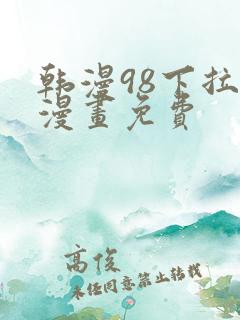 韩漫98下拉
漫畫免費
高俊
未经同意禁止转载